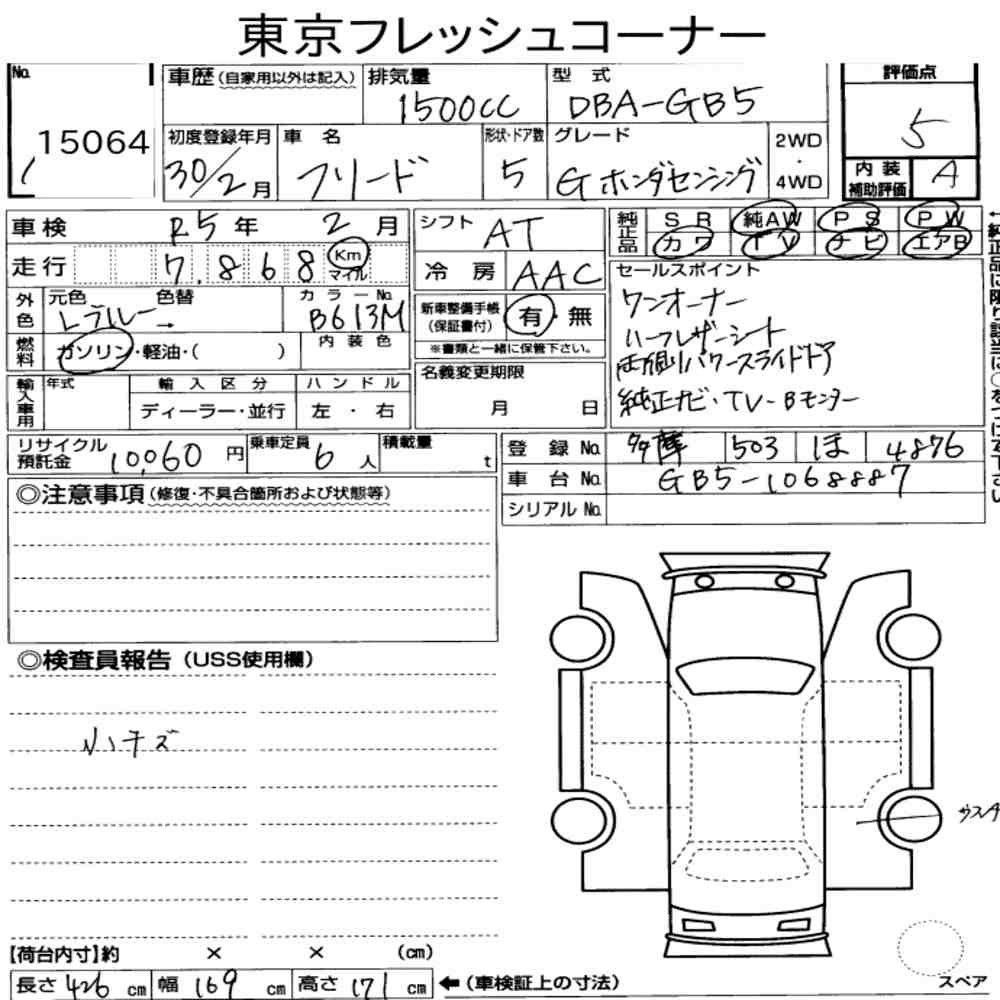 東京フレッシュコーナー
No. 15064
車歴(自家用以外は記入)
排気量 1500CC
型 式 DBA-GB5
評価点 5
初度登録年月 30/2月
車 名 フリード
形状・ドア数 5
グレード G ホンダセンシング
2WD・4WD
内装補助評価 A
車検 R5年 2月
走行 7,868 Km マイル
シフト AT
冷房 AAC
純正品 SR 純AW PS PW
カワ TV ナビ エアB
セールスポイント
ワンオーナー
ハーフレザーシート
両側パワースライドドア
純正ナビ・TV-Bモニター
外色 元色 色替 →
カラーNo. B613M
燃料 ガソリン・軽油・( )
内装色
新車整備手帳(保証書付) 有・無
※書類と一緒に保管下さい。
名義変更期限
月 日
輸入車用 年式 輸入区分 ハンドル
ディーラー・並行 左・右
リサイクル預託金 10,060円
乗車定員 6人
積載量 t
登録No. 多摩 503 ほ 4876
車台No. GB5-1068887
シリアルNo.
◎注意事項(修復・不具合箇所および状態等)
◎検査員報告(USS使用欄)
小キズ
【荷台内寸】約 × × (cm)
長さ 426 cm 幅 169 cm 高さ 171 cm ←(車検証上の寸法)
スペア